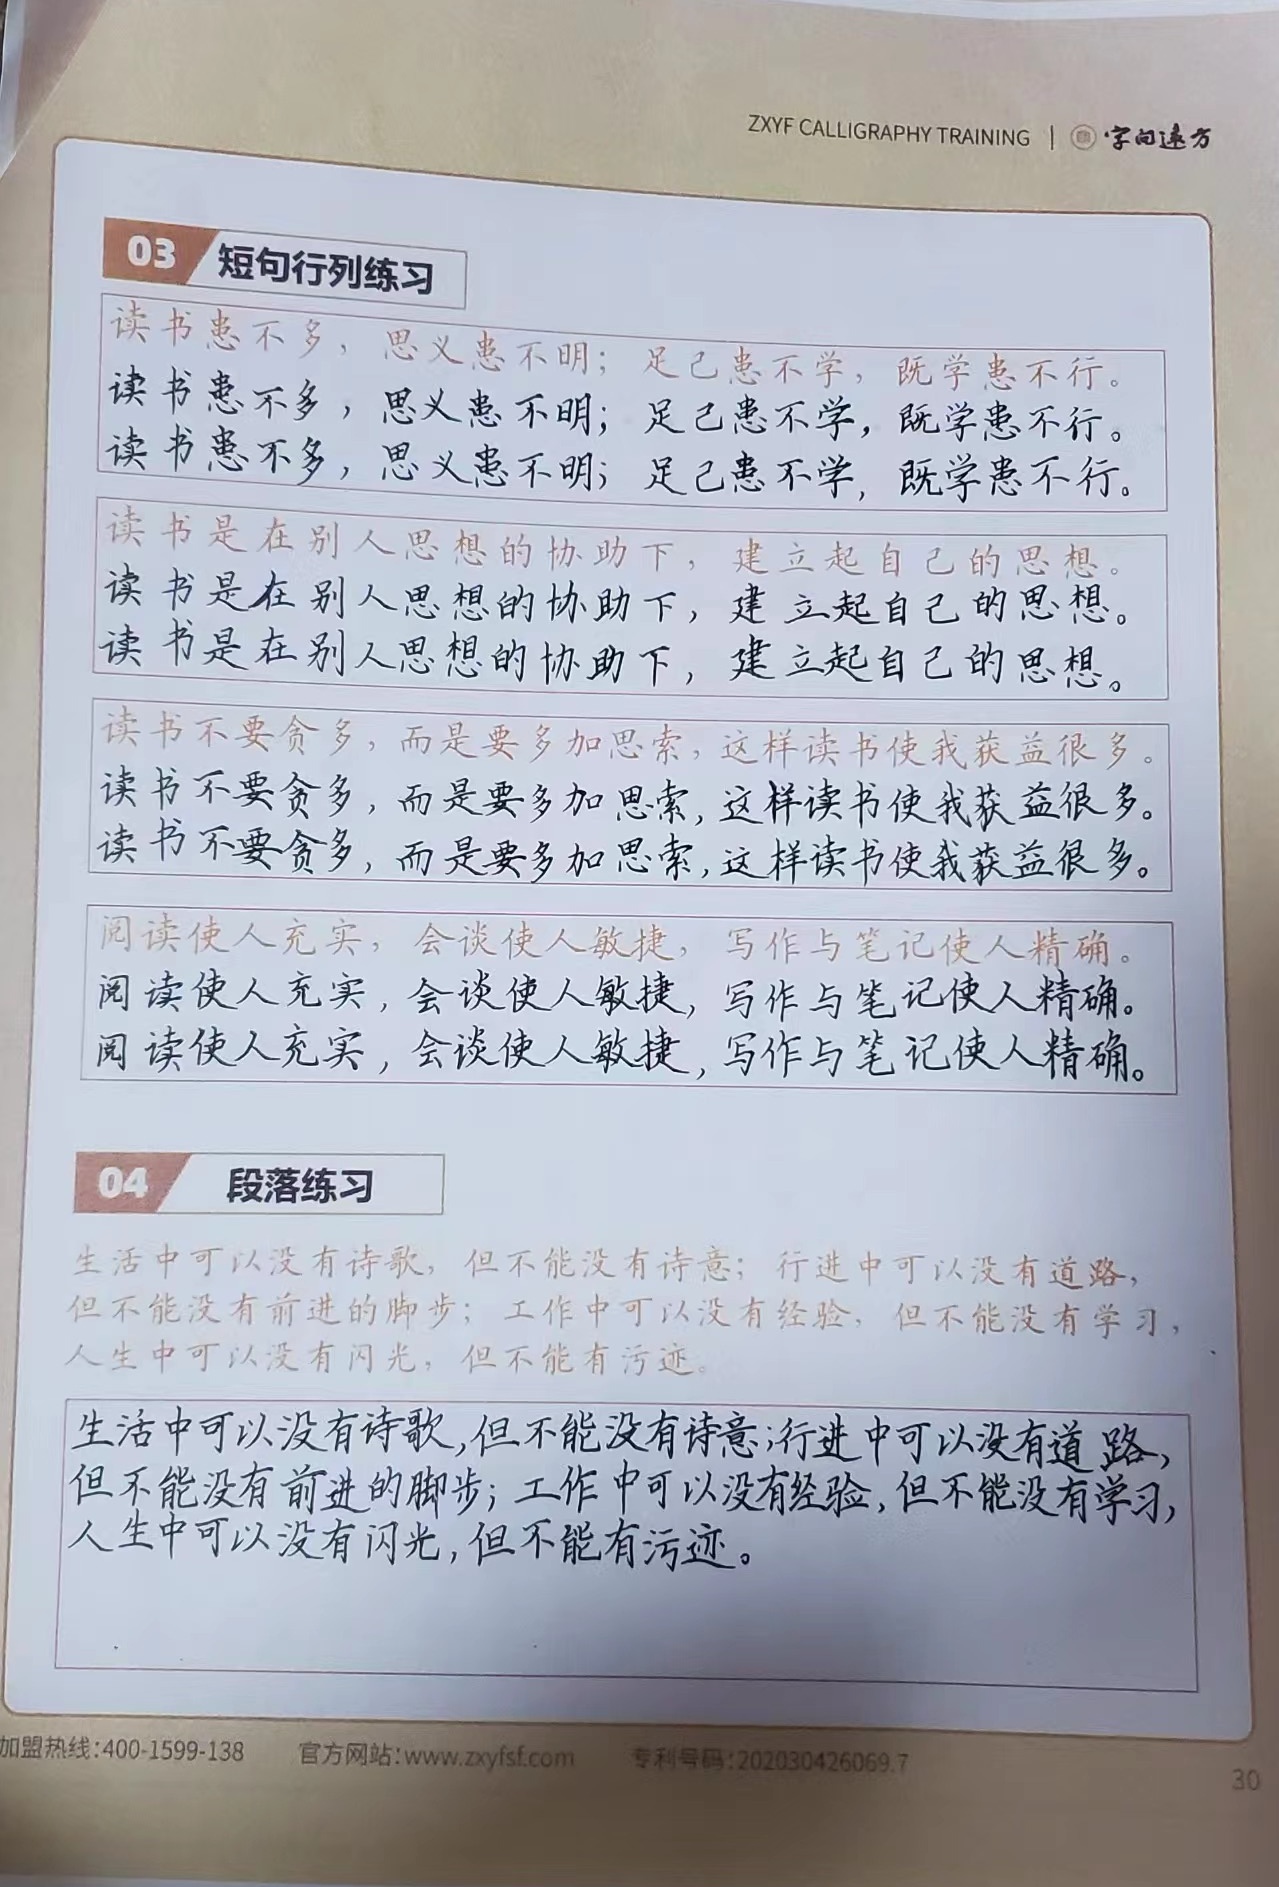 ZXYF CALLIGRAPHY TRAINING | 字向远方
03 短句行列练习
读书患不多，思义患不明；足己患不学，既学患不行。
读书患不多，思义患不明；足己患不学，既学患不行。
读书患不多，思义患不明；足己患不学，既学患不行。
读书是在别人思想的协助下，建立起自己的思想。
读书是在别人思想的协助下，建立起自己的思想。
读书是在别人思想的协助下，建立起自己的思想。
读书不要贪多，而是要多加思索，这样读书使我获益很多。
读书不要贪多，而是要多加思索，这样读书使我获益很多。
读书不要贪多，而是要多加思索，这样读书使我获益很多。
阅读使人充实，会谈使人敏捷，写作与笔记使人精确。
阅读使人充实，会谈使人敏捷，写作与笔记使人精确。
阅读使人充实，会谈使人敏捷，写作与笔记使人精确。
04 段落练习
生活中可以没有诗歌，但不能没有诗意；行进中可以没有道路，
但不能没有前进的脚步；工作中可以没有经验，但不能没有学习，
人生中可以没有闪光，但不能有污迹。
生活中可以没有诗歌，但不能没有诗意；行进中可以没有道路，
但不能没有前进的脚步；工作中可以没有经验，但不能没有学习，
人生中可以没有闪光，但不能有污迹。
加盟热线：400-1599-138 官方网站：www.zxyfsf.com 专利号码：202030426069.7
30